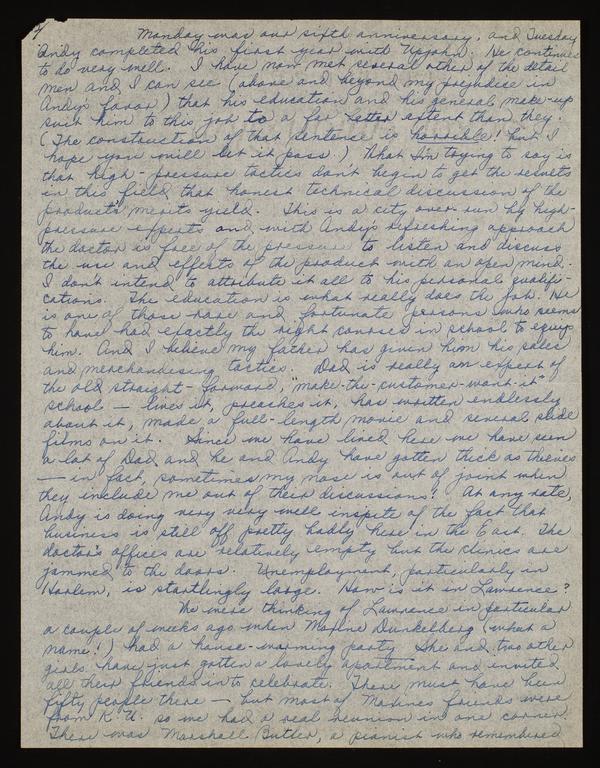 Monday was our sixth anniversary, and Tuesday
Andy completed his first year with Upjohn. He continues
to do very well. I have now met several other of the detail
men and I can see (above and beyond my prejudice in
Andy's favor) that his education and his general make-up
suit him to this job to a far better extent than they.
(The construction of that sentence is horrible! but I
hope you will let it pass.) What I'm trying to say is
that high-pressure tactics don't begin to get the results
in this field that honest technical discussion of the
products' merits yield. This is a city over-run by high-
pressure experts and with Andy's refreshing approach
the doctor is free of the pressure to listen and discuss
the use and effects of the product with an open mind.
I don't intend to attribute it all to his personal qualifi-
cations. The education is what really does the job. He
is one of those rare and fortunate persons who seems
to have had exactly the right courses in school to equip
him. And I believe my father has given him his sales
and merchandising tactics. Dad is really an expert of
the old straight-forward, "make-the-customer-want-it"
school — lives it, preaches it, has written endlessly
about it, made a full-length movie and several slide
films on it. Since we have lived here we have seen
a lot of Dad and he and Andy have gotten thick as thieves
— in fact, sometimes my nose is out of joint when
they include me out of their discussions! At any rate,
Andy is doing very very well inspite of the fact that
business is still off pretty badly here in the East. The
doctor's offices are relatively empty but the clinics are
jammed to the doors. Unemployment, particularly in
Harlem, is startlingly large. How is it in Lawrence?
We were thinking of Lawrence in particular
a couple of weeks ago when Maxine Dunkelberg (what a
name!) had a house-warming party. She and two other
girls have just gotten a lovely apartment and invited
all their friends in to celebrate. There must have been
fifty people there — but most of Maxines friends were
from K.U. so we had a real reunion in one corner.
There was Marshall Butler, a pianist who remembered